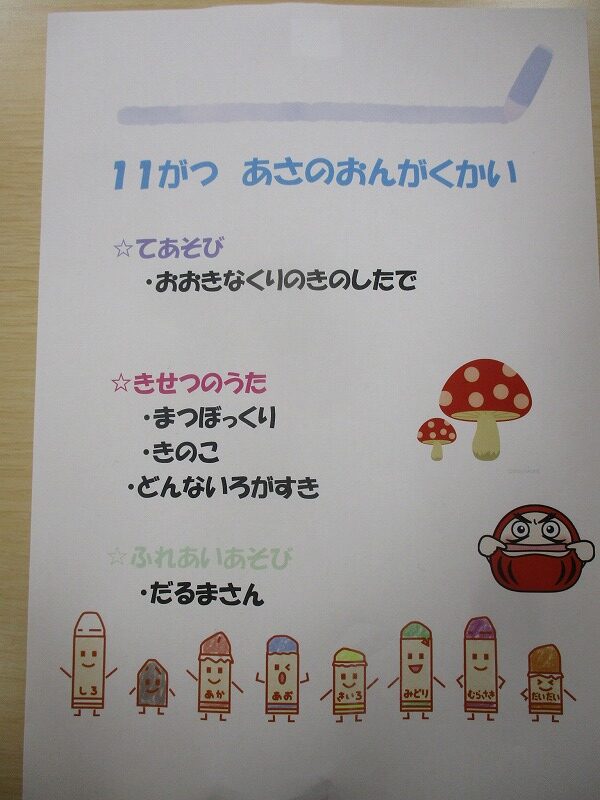 11がつ あさのおんがくかい
☆てあそび
・おおきなくりのきのしたで
☆きせつのうた
・まつぼっくり
・きのこ
・どんないろがすき
☆ふれあいあそび
・だるまさん
しろ
あか
あお
きいろ
みどり
むらさき
だいだい